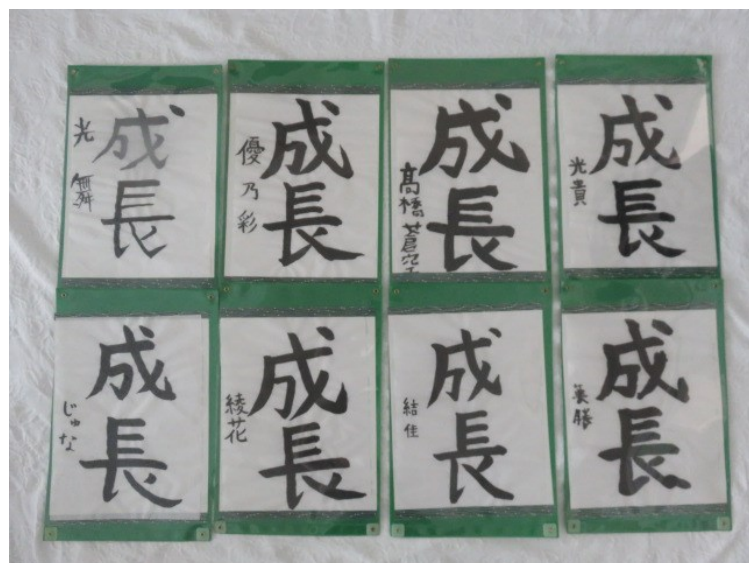 成長
光舞
成長
優乃彩
成長
高橋蒼空
成長
光貴
成長
じゅな
成長
綾花
成長
結佳
成長